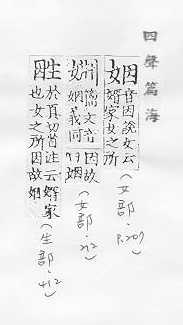 四聲篇海
姻音因說文云
婿家女之所
(女部.p.207)
婣籀文音
姻義同
因故
姻
(女部.212)
於真切首註云婿家
也女之所因故姻
(生部.412)